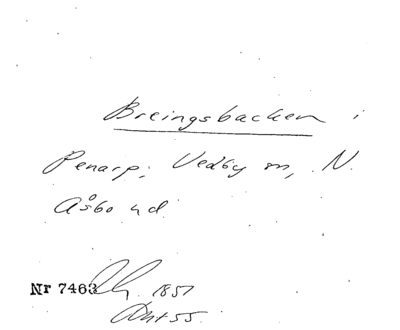 Breingsbacken i
Penarp, Vedby sn, N.
Åsbo hd.
Nr 7463 1851